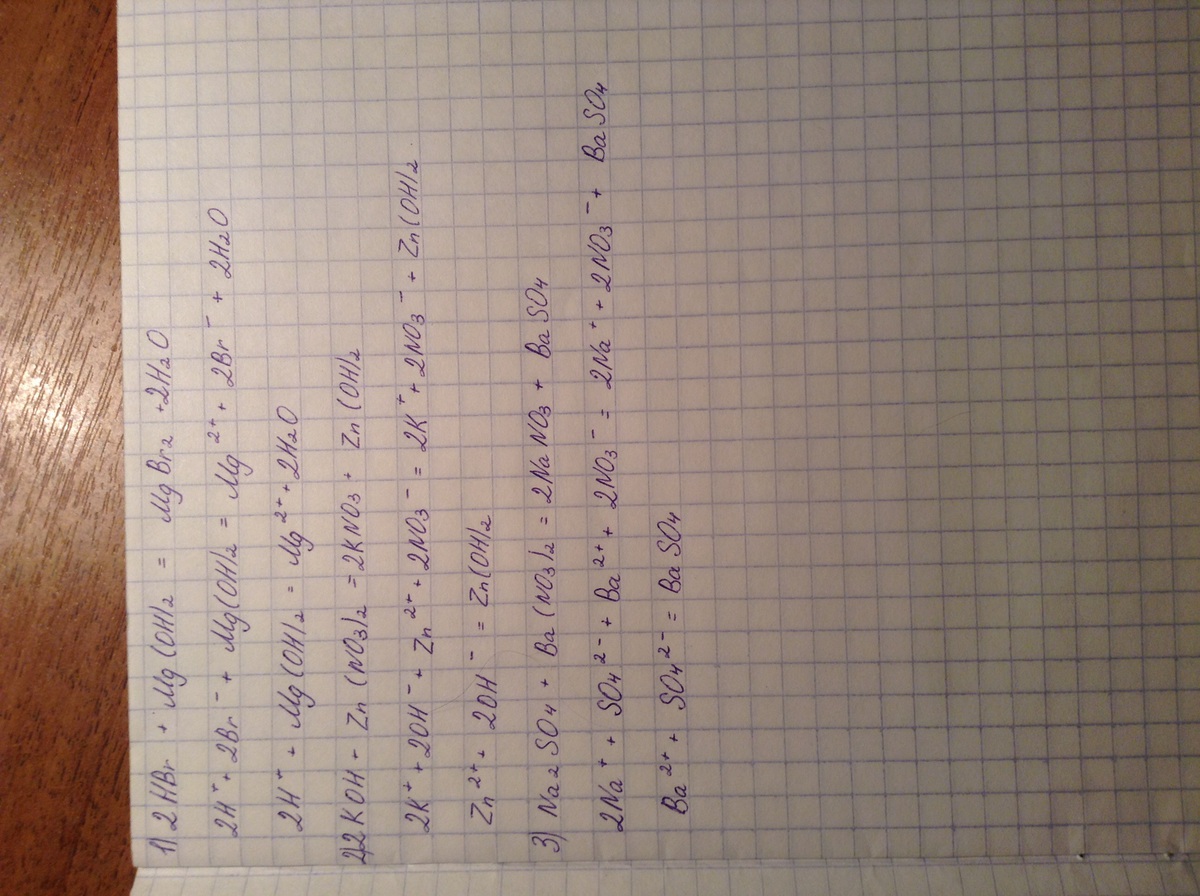 1) 2HBr + Mg(OH)2 = MgBr2 + 2H2O
2H⁺ + 2Br⁻ + Mg(OH)2 = Mg²⁺ + 2Br⁻ + 2H2O
2H⁺ + Mg(OH)2 = Mg²⁺ + 2H2O
2) 2KOH + Zn(NO3)2 = 2KNO3 + Zn(OH)2
2K⁺ + 2OH⁻ + Zn²⁺ + 2NO3⁻ = 2K⁺ + 2NO3⁻ + Zn(OH)2
Zn²⁺ + 2OH⁻ = Zn(OH)2
3) Na2SO4 + Ba(NO3)2 = 2NaNO3 + BaSO4
2Na⁺ + SO4²⁻ + Ba²⁺ + 2NO3⁻ = 2Na⁺ + 2NO3⁻ + BaSO4
Ba²⁺ + SO4²⁻ = BaSO4